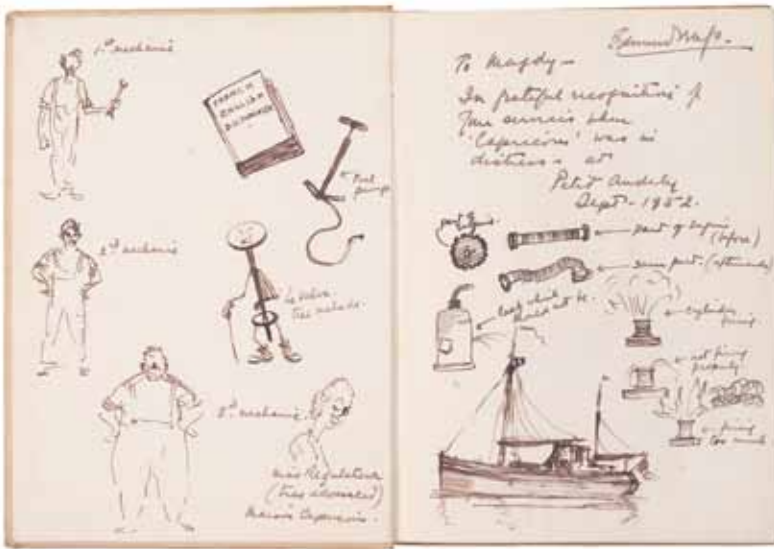 1st mechanic
FRENCH
ENGLISH
DICTIONARY
Fuel
pump
2nd mechanic
La valve
très malade.
3rd mechanic.
Miss Regulateur
(très
To Magdy –
In grateful recognition of
your services when
'Capricorn' was in
distress – at
Petit Andely
Sept – 1952.
part of engine
(before)
same part. (afterwards)
leak which
should not be.
cylinder
firing
not firing
properly
firing
too much